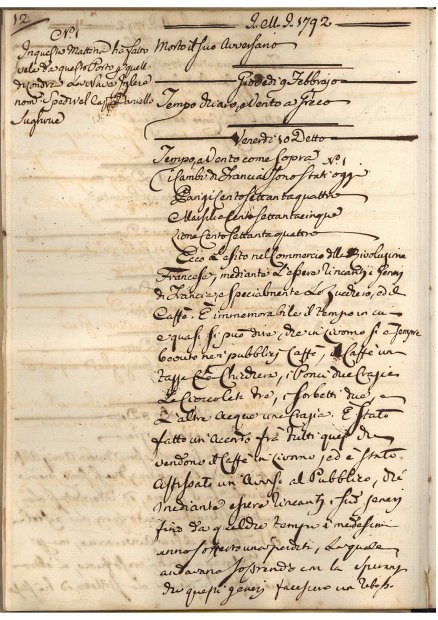 12
J. M. J. 1792
N.1
In questa Mattina hà fatto
vela da questo Porto p quell
di Londra La Nave Inglese
nom.
Morto il suo Avversario
Giovedi 9 Febbrajo
Tempo chiaro, e Vento a Greco
Venerdi 10 Detto
Tempo, e Vento come sopra N.1
I Cambi di Francia sono stati oggi
Parigi Cento settantaquattro
Marsilia Cento settantacinque
Lione Cento settantaquattro
Ecco L'esito nel Commercio della Rivoluzione
Francese, mediante L'essere rincariti i Generi
di Francia, e specialmente Lo Zucchero, ed il
Caffè. È immemorabile il tempo in cui
e quasi si può dire, che in Livorno si è sempre
bevuto ne i pubblici Caffè, il Caffè un
i Ponci due Crazie
Le Cioccolate tre, i Sorbetti due, e
L'altre Acque una Crazia. È stato
fatto un Accordo frà tutti quei che
vendono il Caffè in Livorno, ed è stato
un Avviso al Pubblico, che
mediante essere rincariti i suoi generi
fino da qualche tempo i medesimi
anno sofferto una perdita, La quale
andavano soffrendo con la speranza
che questi generi facessero un ribass-